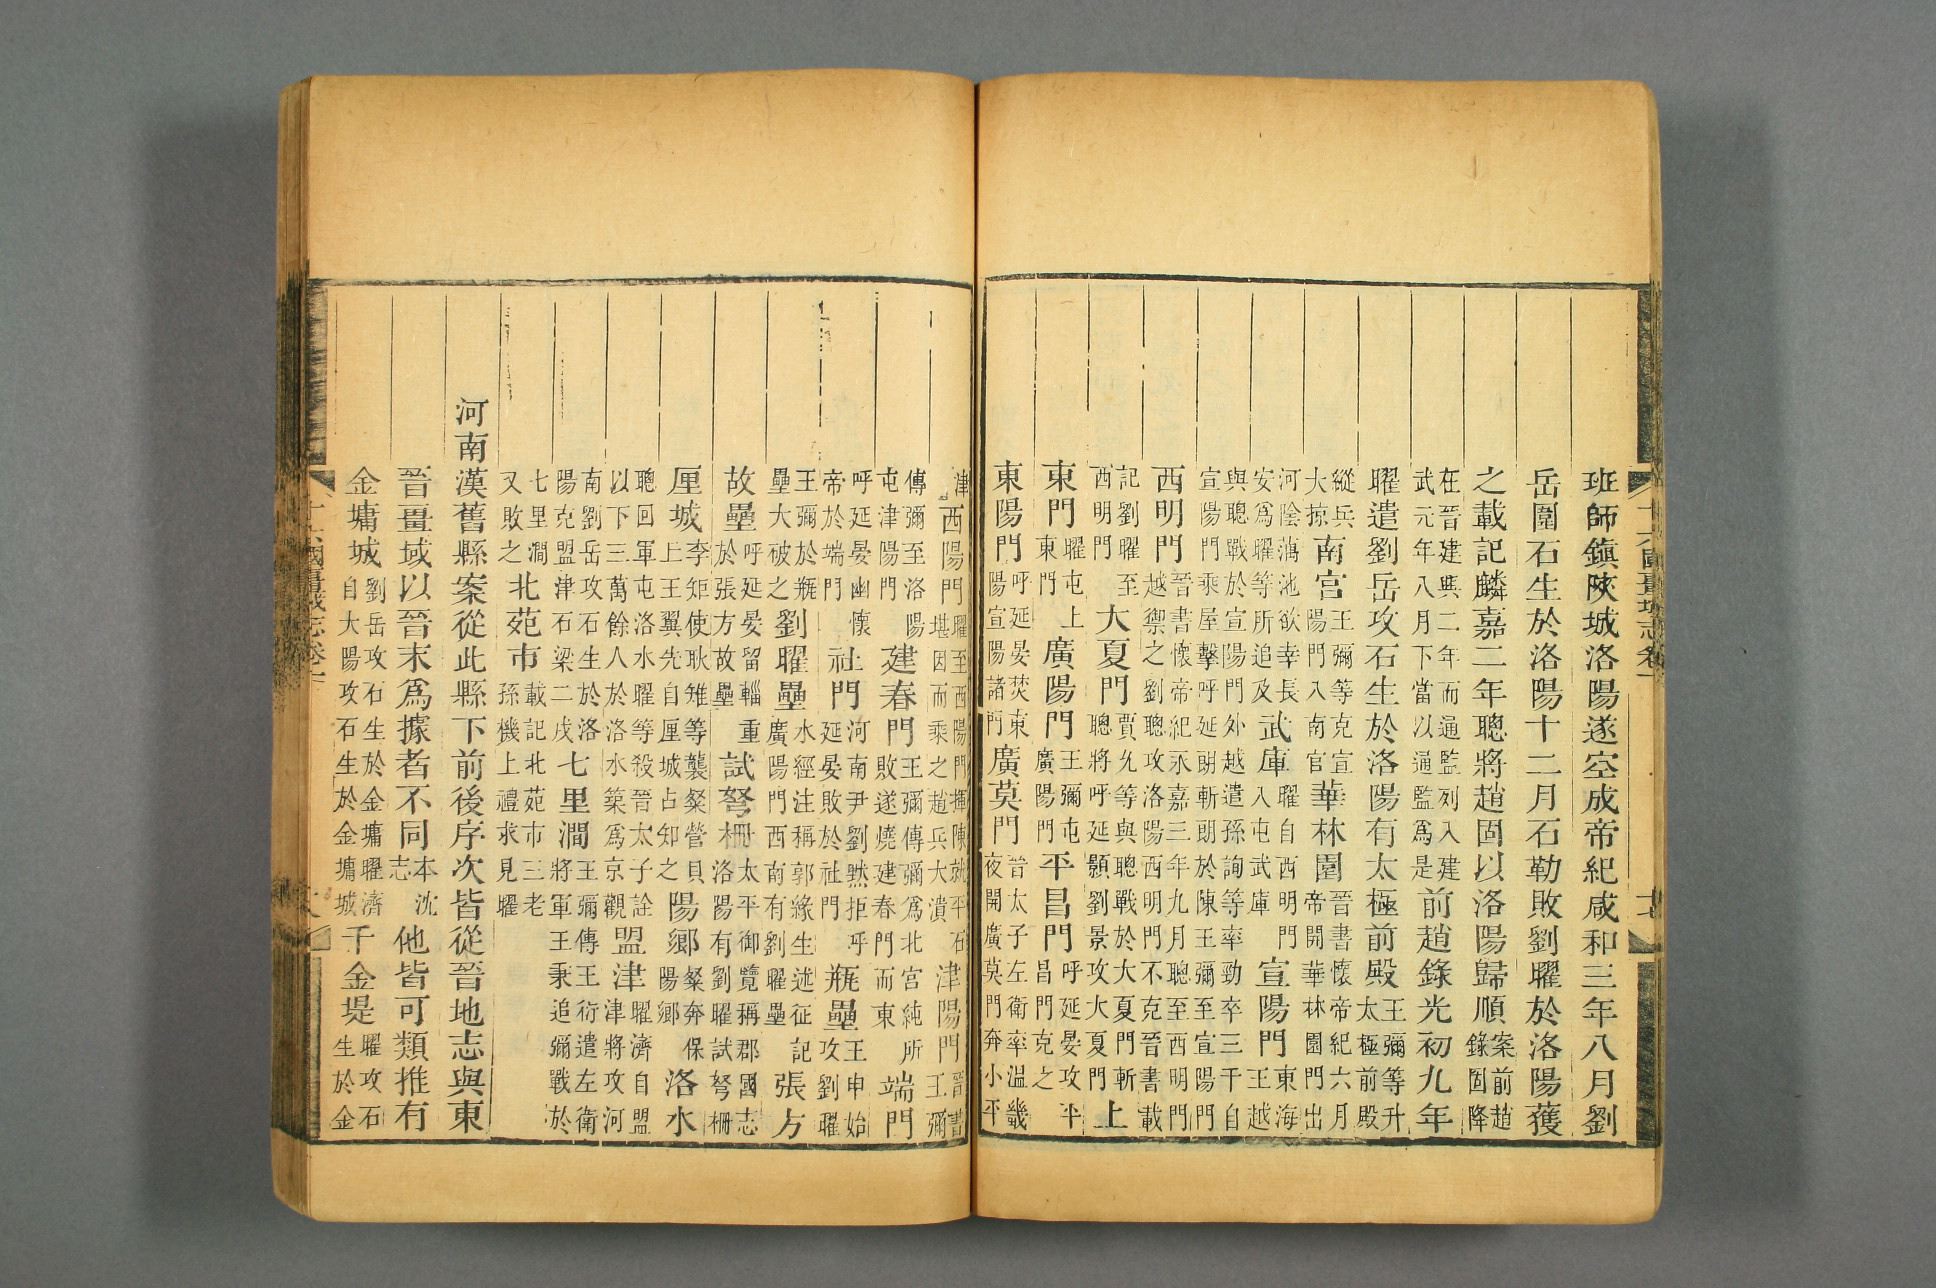 十六國疆域志卷一　十七
班師鎮陝城洛陽遂空成帝紀咸和三年八月劉
岳圍石生於洛陽十二月石勒敗劉曜於洛陽獲
之載記麟嘉二年聰將趙固以洛陽歸順案前趙錄固降
在晉建興二年而通監列入建武元年八月下當以通監爲是前趙錄光初九年
曜遣劉岳攻石生於洛陽有太極前殿王彌等升太極前殿
縱兵大掠南宮王彌等克宣陽門入南宮華林園晉書懷帝紀六月帝開華林園門出
河陰藕池欲幸長安爲曜等所追及武庫曜自西明門入屯武庫宣陽門東海王越
與聰戰於宣陽門外越遣孫詢等率勁卒三千自宣陽門乘屋擊呼延朗斬朗於陳王彌至宣陽門
西明門晉書懷帝紀永嘉三年九月聰至西明門越禦之劉聰攻洛陽西明門不克晉書載
記劉曜至西明門大夏門賈允等與聰戰於大夏門斬聰將呼延顥劉景攻大夏門上
東門曜屯上東門廣陽門王彌屯廣陽門平昌門呼延晏攻平昌門克之
東陽門呼延晏焚東陽宣陽諸門廣莫門晉太子左衛率溫畿夜開廣莫門奔小平
津西陽門曜至西陽門揮陳就平石堪因而乘之趙兵大潰津陽門晉書王彌
傳彌至洛陽屯津陽門建春門王彌傳彌爲北宮純所敗遂燒建春門而東端門
呼延晏幽懷帝於端門社門河南尹劉黙拒呼延晏敗於社門瓶壘王申始攻劉曜
王彌於瓶壘大破之劉曜壘水經注稱郭緣生述征記廣陽門西南有劉曜壘張方
故壘呼延晏留輜重於張方故壘試弩柵太平御覽稱郡國志洛陽有劉曜試弩柵
厘城李矩使耿雉等襲粲營貝上王翼先自厘城占知之陽鄉粲奔保陽鄉洛水
聰回軍屯洛水曜等殺晉太子詮以下三萬餘人於洛水築爲京觀盟津曜濟自盟津將攻河
南劉岳攻石生於洛陽克盟津石梁二戌七里澗王彌傳王衍遣左衛將軍王秉追彌戰於
七里澗又敗之北苑市載記北苑市三老孫機上禮求見曜
河南漢舊縣案從此縣下前後序次皆從晉地志與東
晉畺域以晉末爲據者不同本沈志他皆可類推有
金墉城劉岳攻石生於金墉曜濟自大陽攻石生於金墉城千金堤曜攻石生於金
十六國畺域志卷一　十八